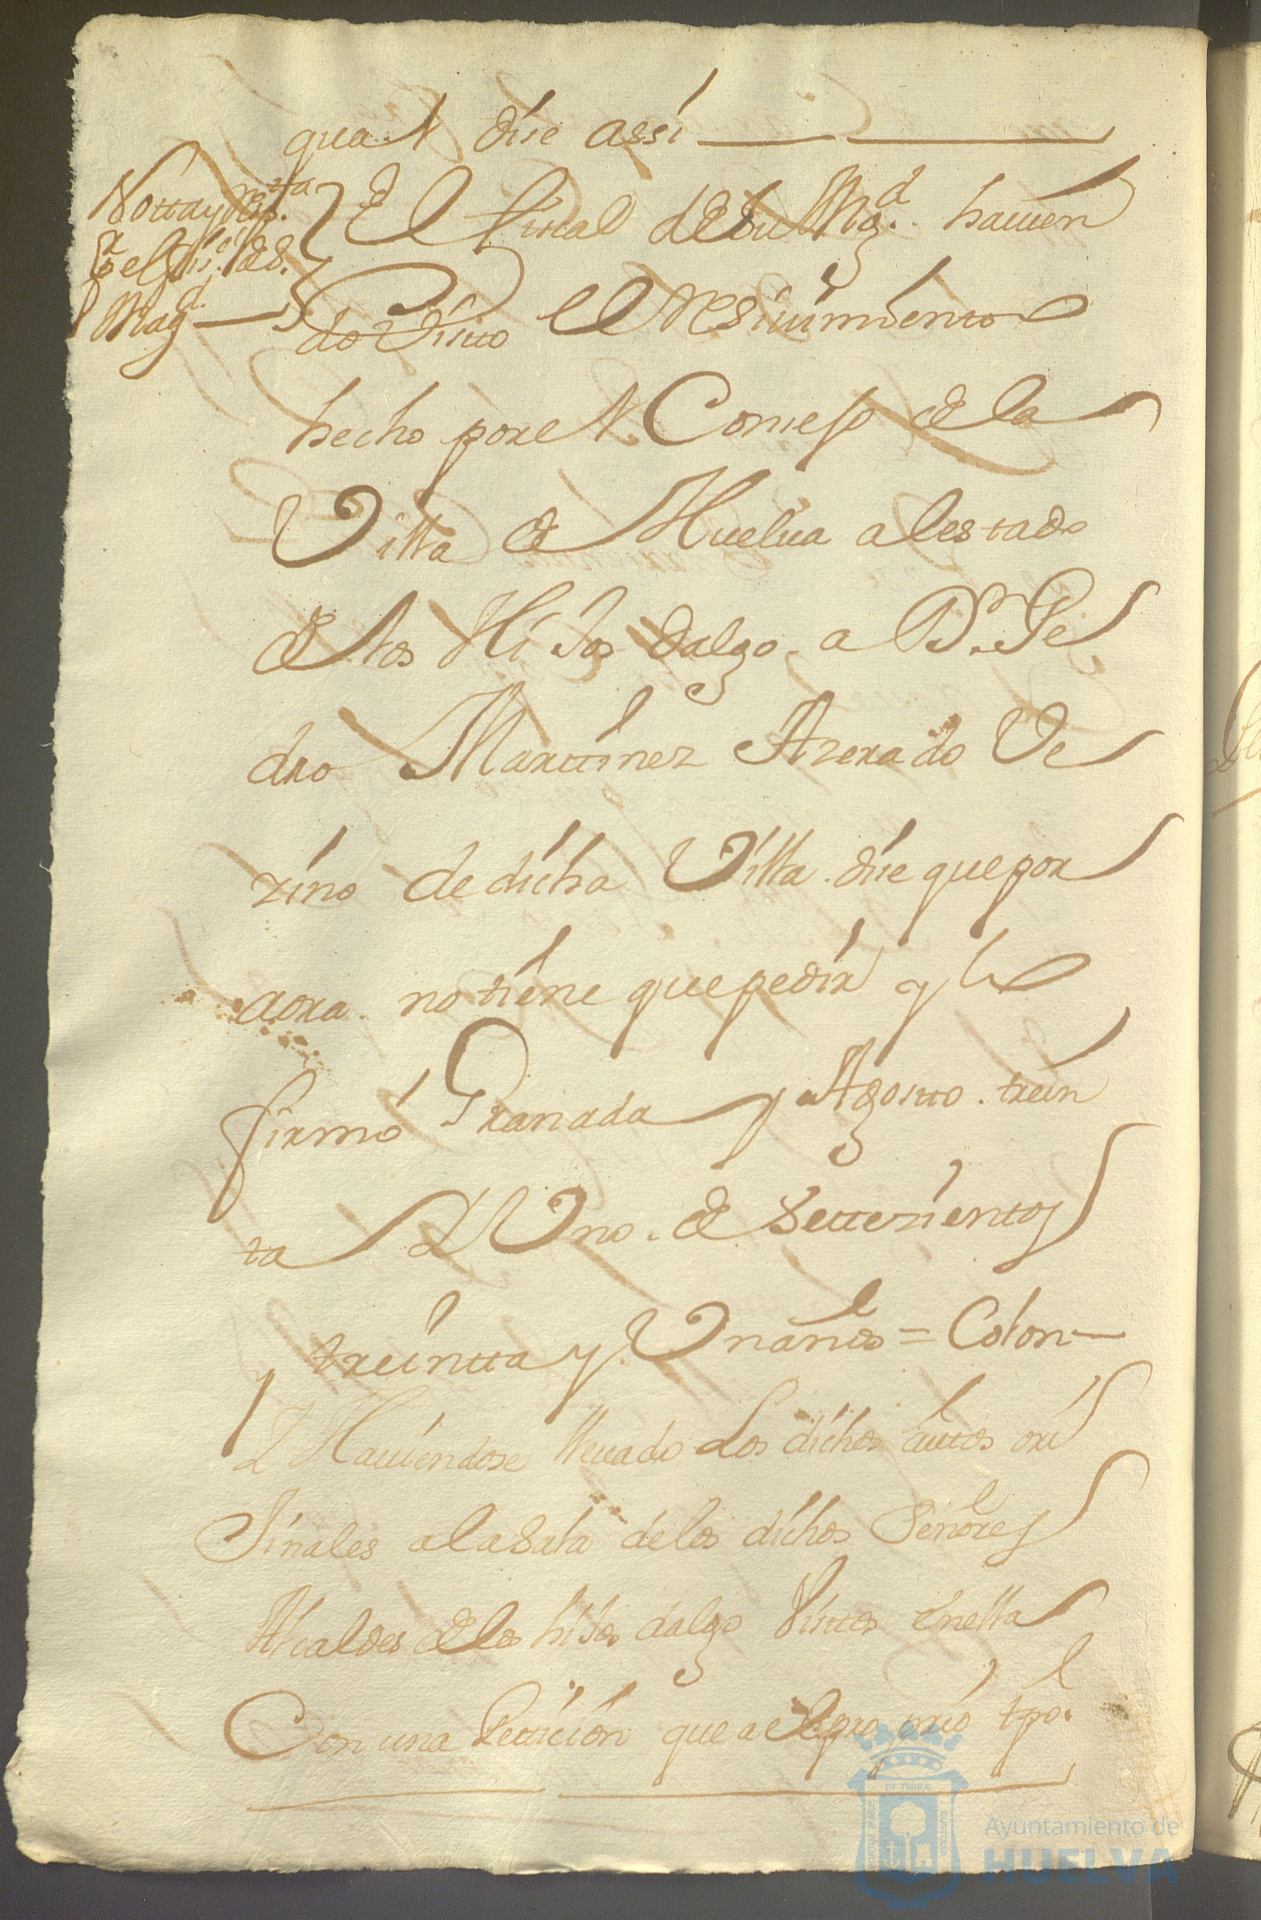 qual dize assi
Notta y Resp.ta
el fis.l de S.
Mag.d
El fiscal de su Mag.d hauien
do Visto el resiuimiento
hecho por el Consejo de la
Villa de Huelua al estado
de los Hijos dalgo a D.n Pe
dro Martinez Azerado Ve
zino de dicha Villa. dize que por
aora. no tiene que pedir y lo
firmó Granada y Agosto. trein
ta Y Uno. de Settezientos
y treintta y Un años = Colon
Y Hauiendose lleuado Los dichos autos ori
Jinales a la Sala de los dichos Señores
Alcaldes de los hijos dalgo Vistos en ella
Con una Peticion que a el propio tpo.
Ayuntamiento de
HUELVA